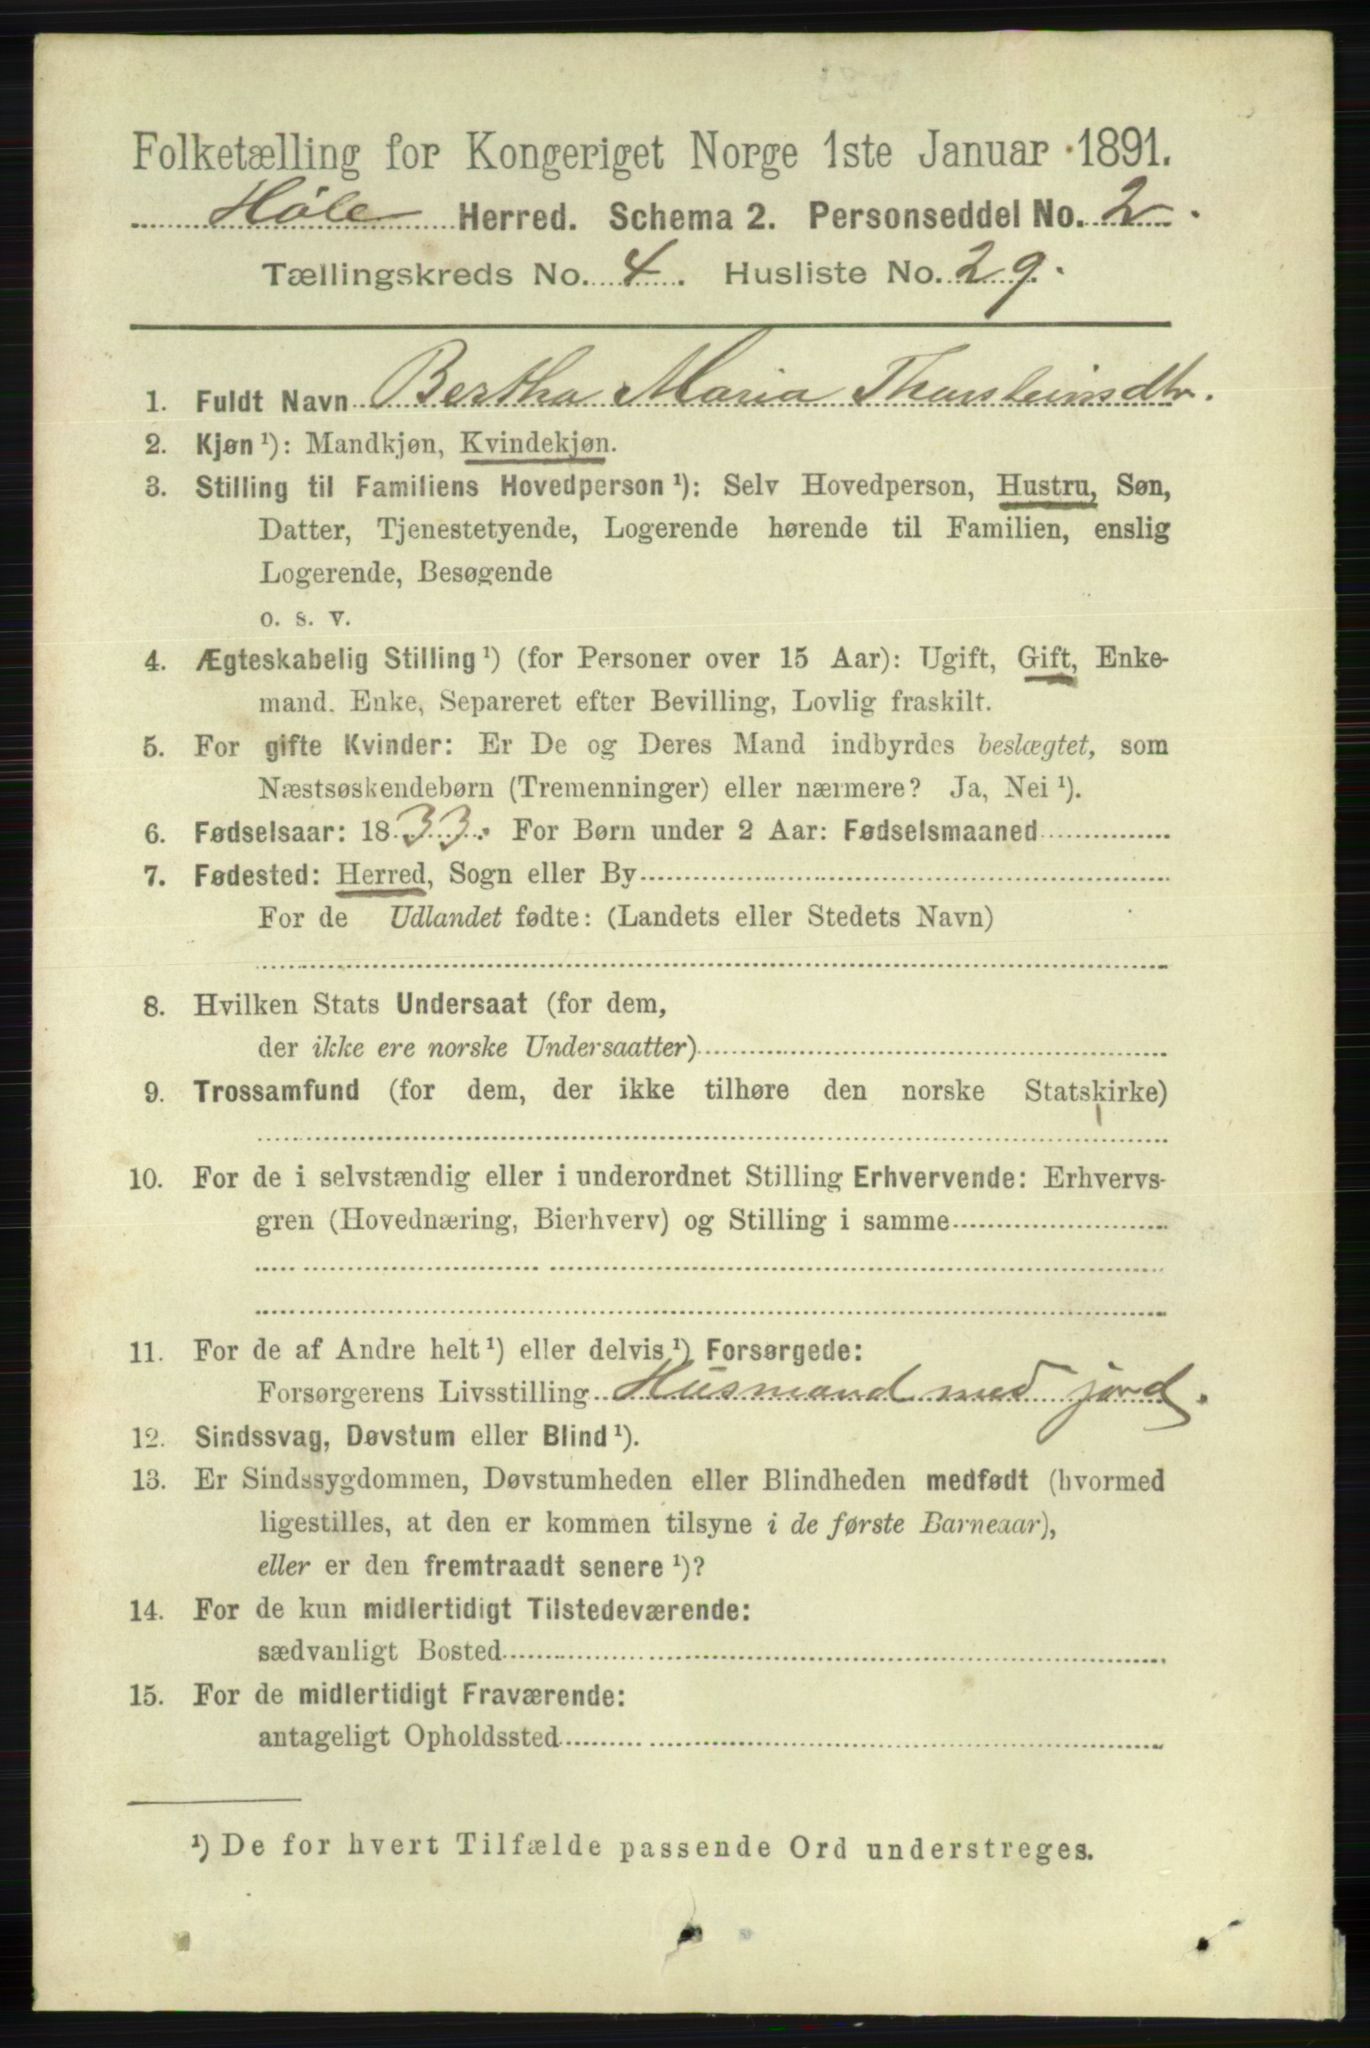 Folketælling for Kongeriget Norge 1ste Januar 1891.
Høle Herred. Schema 2. Personseddel No. 2.
Tællingskreds No. 4. Husliste No. 29.
1. Fuldt Navn Bertha Maria Thorsteinsdtr.
2. Kjøn ¹): Mandkjøn, Kvindekjøn.
3. Stilling til Familiens Hovedperson ¹): Selv Hovedperson, Hustru, Søn,
Datter, Tjenestetyende, Logerende hørende til Familien, enslig
Logerende, Besøgende
o. s. v.
4. Ægteskabelig Stilling ¹) (for Personer over 15 Aar): Ugift, Gift, Enke-
mand, Enke, Separeret efter Bevilling, Lovlig fraskilt.
5. For gifte Kvinder: Er De og Deres Mand indbyrdes beslægtet, som
Næstsøskendebørn (Tremenninger) eller nærmere? Ja, Nei ¹).
6. Fødselsaar: 1833. For Børn under 2 Aar: Fødselsmaaned
7. Fødested: Herred, Sogn eller By
For de Udlandet fødte: (Landets eller Stedets Navn)
8. Hvilken Stats Undersaat (for dem,
der ikke ere norske Undersaatter)
9. Trossamfund (for dem, der ikke tilhøre den norske Statskirke)
10. For de i selvstændig eller i underordnet Stilling Erhvervende: Erhvervs-
gren (Hovednæring, Bierhverv) og Stilling i samme
11. For de af Andre helt ¹) eller delvis ¹) Forsørgede:
Forsørgerens Livsstilling Husmand med jord.
12. Sindssvag, Døvstum eller Blind ¹).
13. Er Sindssygdommen, Døvstumheden eller Blindheden medfødt (hvormed
ligestilles, at den er kommen tilsyne i de første Barneaar),
eller er den fremtraadt senere ¹)?
14. For de kun midlertidigt Tilstedeværende:
sædvanligt Bosted
15. For de midlertidigt Fraværende:
antageligt Opholdssted
¹) De for hvert Tilfælde passende Ord understreges.